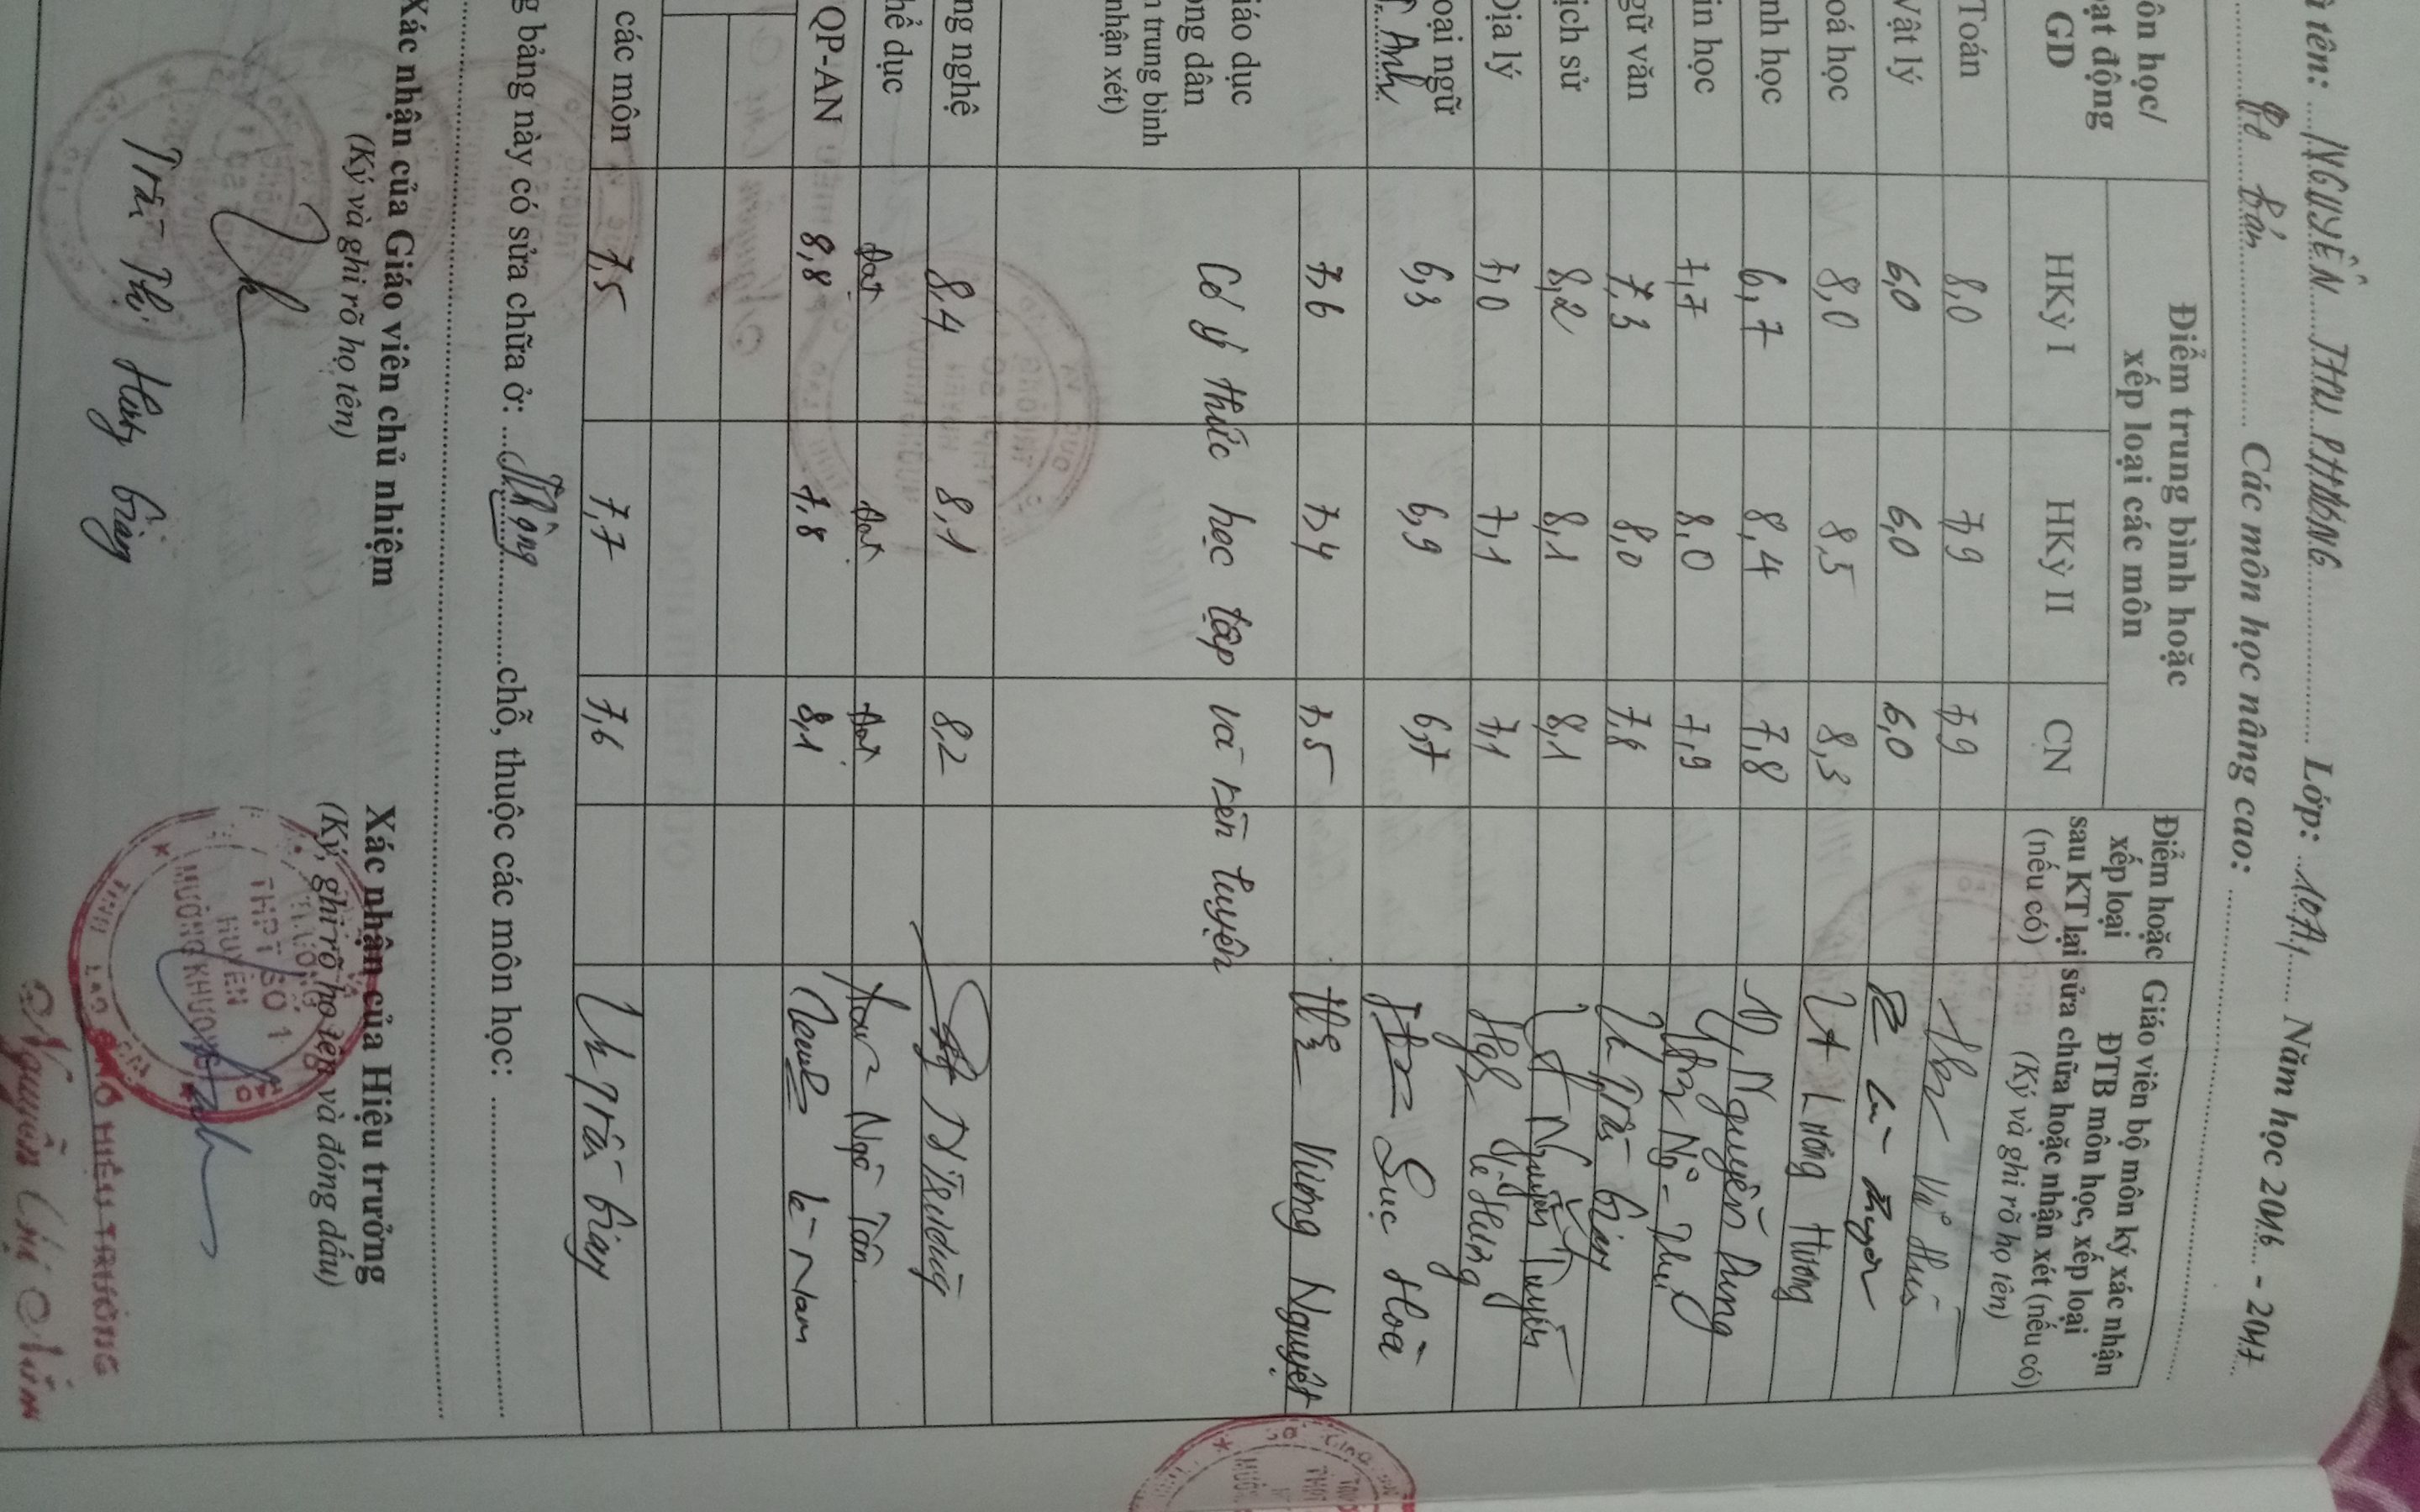 ọ và tên: NGUYỄN THU PHƯƠNG Lớp: 10A1 Năm học 2016 - 2017
Cơ bản Các môn học nâng cao:
ôn học/
ạt động
GD
Điểm trung bình hoặc
xếp loại các môn
HKỳ I HKỳ II CN
Điểm hoặc
xếp loại
sau KT lại
(nếu có)
Giáo viên bộ môn ký xác nhận
ĐTB môn học, xếp loại
sửa chữa hoặc nhận xét (nếu có)
(Ký và ghi rõ họ tên)
Toán 8,0 7,9 7,9 Vũ Huế
Vật lý 6,0 6,0 6,0
oá học 8,0 8,5 8,3 Lương Hương
nh học 6,7 8,4 7,8 Nguyễn Dung
in học 7,7 8,0 7,9
gữ văn 7,3 8,0 7,8 Trần Giang
ịch sử 8,2 8,1 8,1 Nguyễn Tuyến
Địa lý 7,0 7,1 7,1 Lê Hưng
oại ngữ
T. Anh 6,3 6,9 6,7 Sục Hoà
iáo dục
ông dân
n trung bình
nhận xét)
7,6 7,4 7,5 Vương Nguyệt
Có ý thức học tập và rèn luyện
ng nghệ 8,4 8,1 8,2
hể dục Đạt Đạt Đạt Ngô Tân
QP-AN 8,8 7,8 8,1 Lê Nam
các môn 7,5 7,7 7,6 Trần Giang
g bảng này có sửa chữa ở: Không chỗ, thuộc các môn học:
Xác nhận của Giáo viên chủ nhiệm
(Ký và ghi rõ họ tên)
Trần Thị Hương Giang
Xác nhận của Hiệu trưởng
(Ký, ghi rõ họ tên và đóng dấu)
THPT SỐ 1
HUYỆN
MƯỜNG KHƯƠNG
PHÓ HIỆU TRƯỞNG